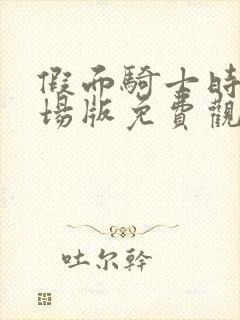 假面騎士時
場版免費觀
吐尔幹